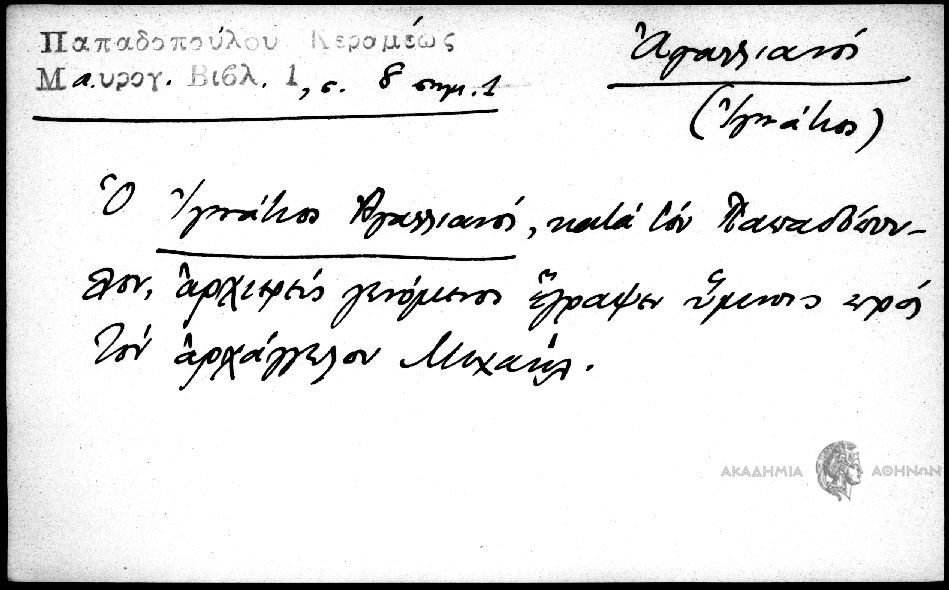 Παπαδοπούλου Κεραμέως
Μαυρογ. Βιβλ. 1, σ. 8 σημ. 1
Ἀγαλλιανός
(Ἰγνάτιος)
Ὁ Ἰγνάτιος Ἀγαλλιανός, κατά τόν Παπαδόπου-
λον, ἀρχιερεύς γενόμενος ἔγραψεν ὕμνους πρός
τόν ἀρχάγγελον Μιχαήλ.
ΑΚΑΔΗΜΙΑ ΑΘΗΝΩΝ